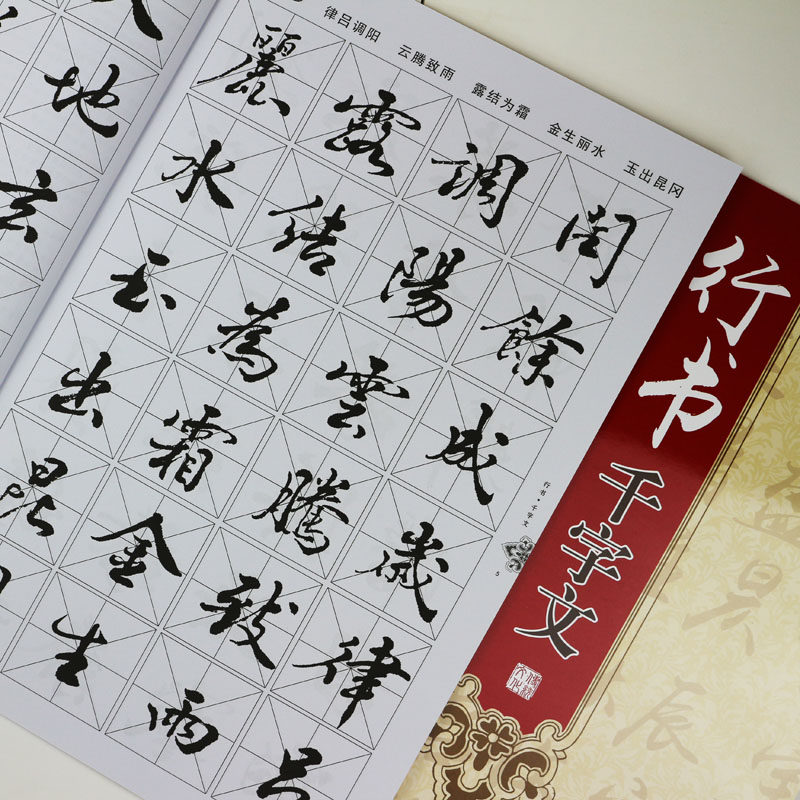 律吕调阳 云腾致雨 露结为霜 金生丽水 玉出昆冈
閏餘成歲律吕
調陽雲騰致雨
露結為霜金生
麗水玉出昆
地玄
行书·千字文
5
行书
千字文
盈昃
辰